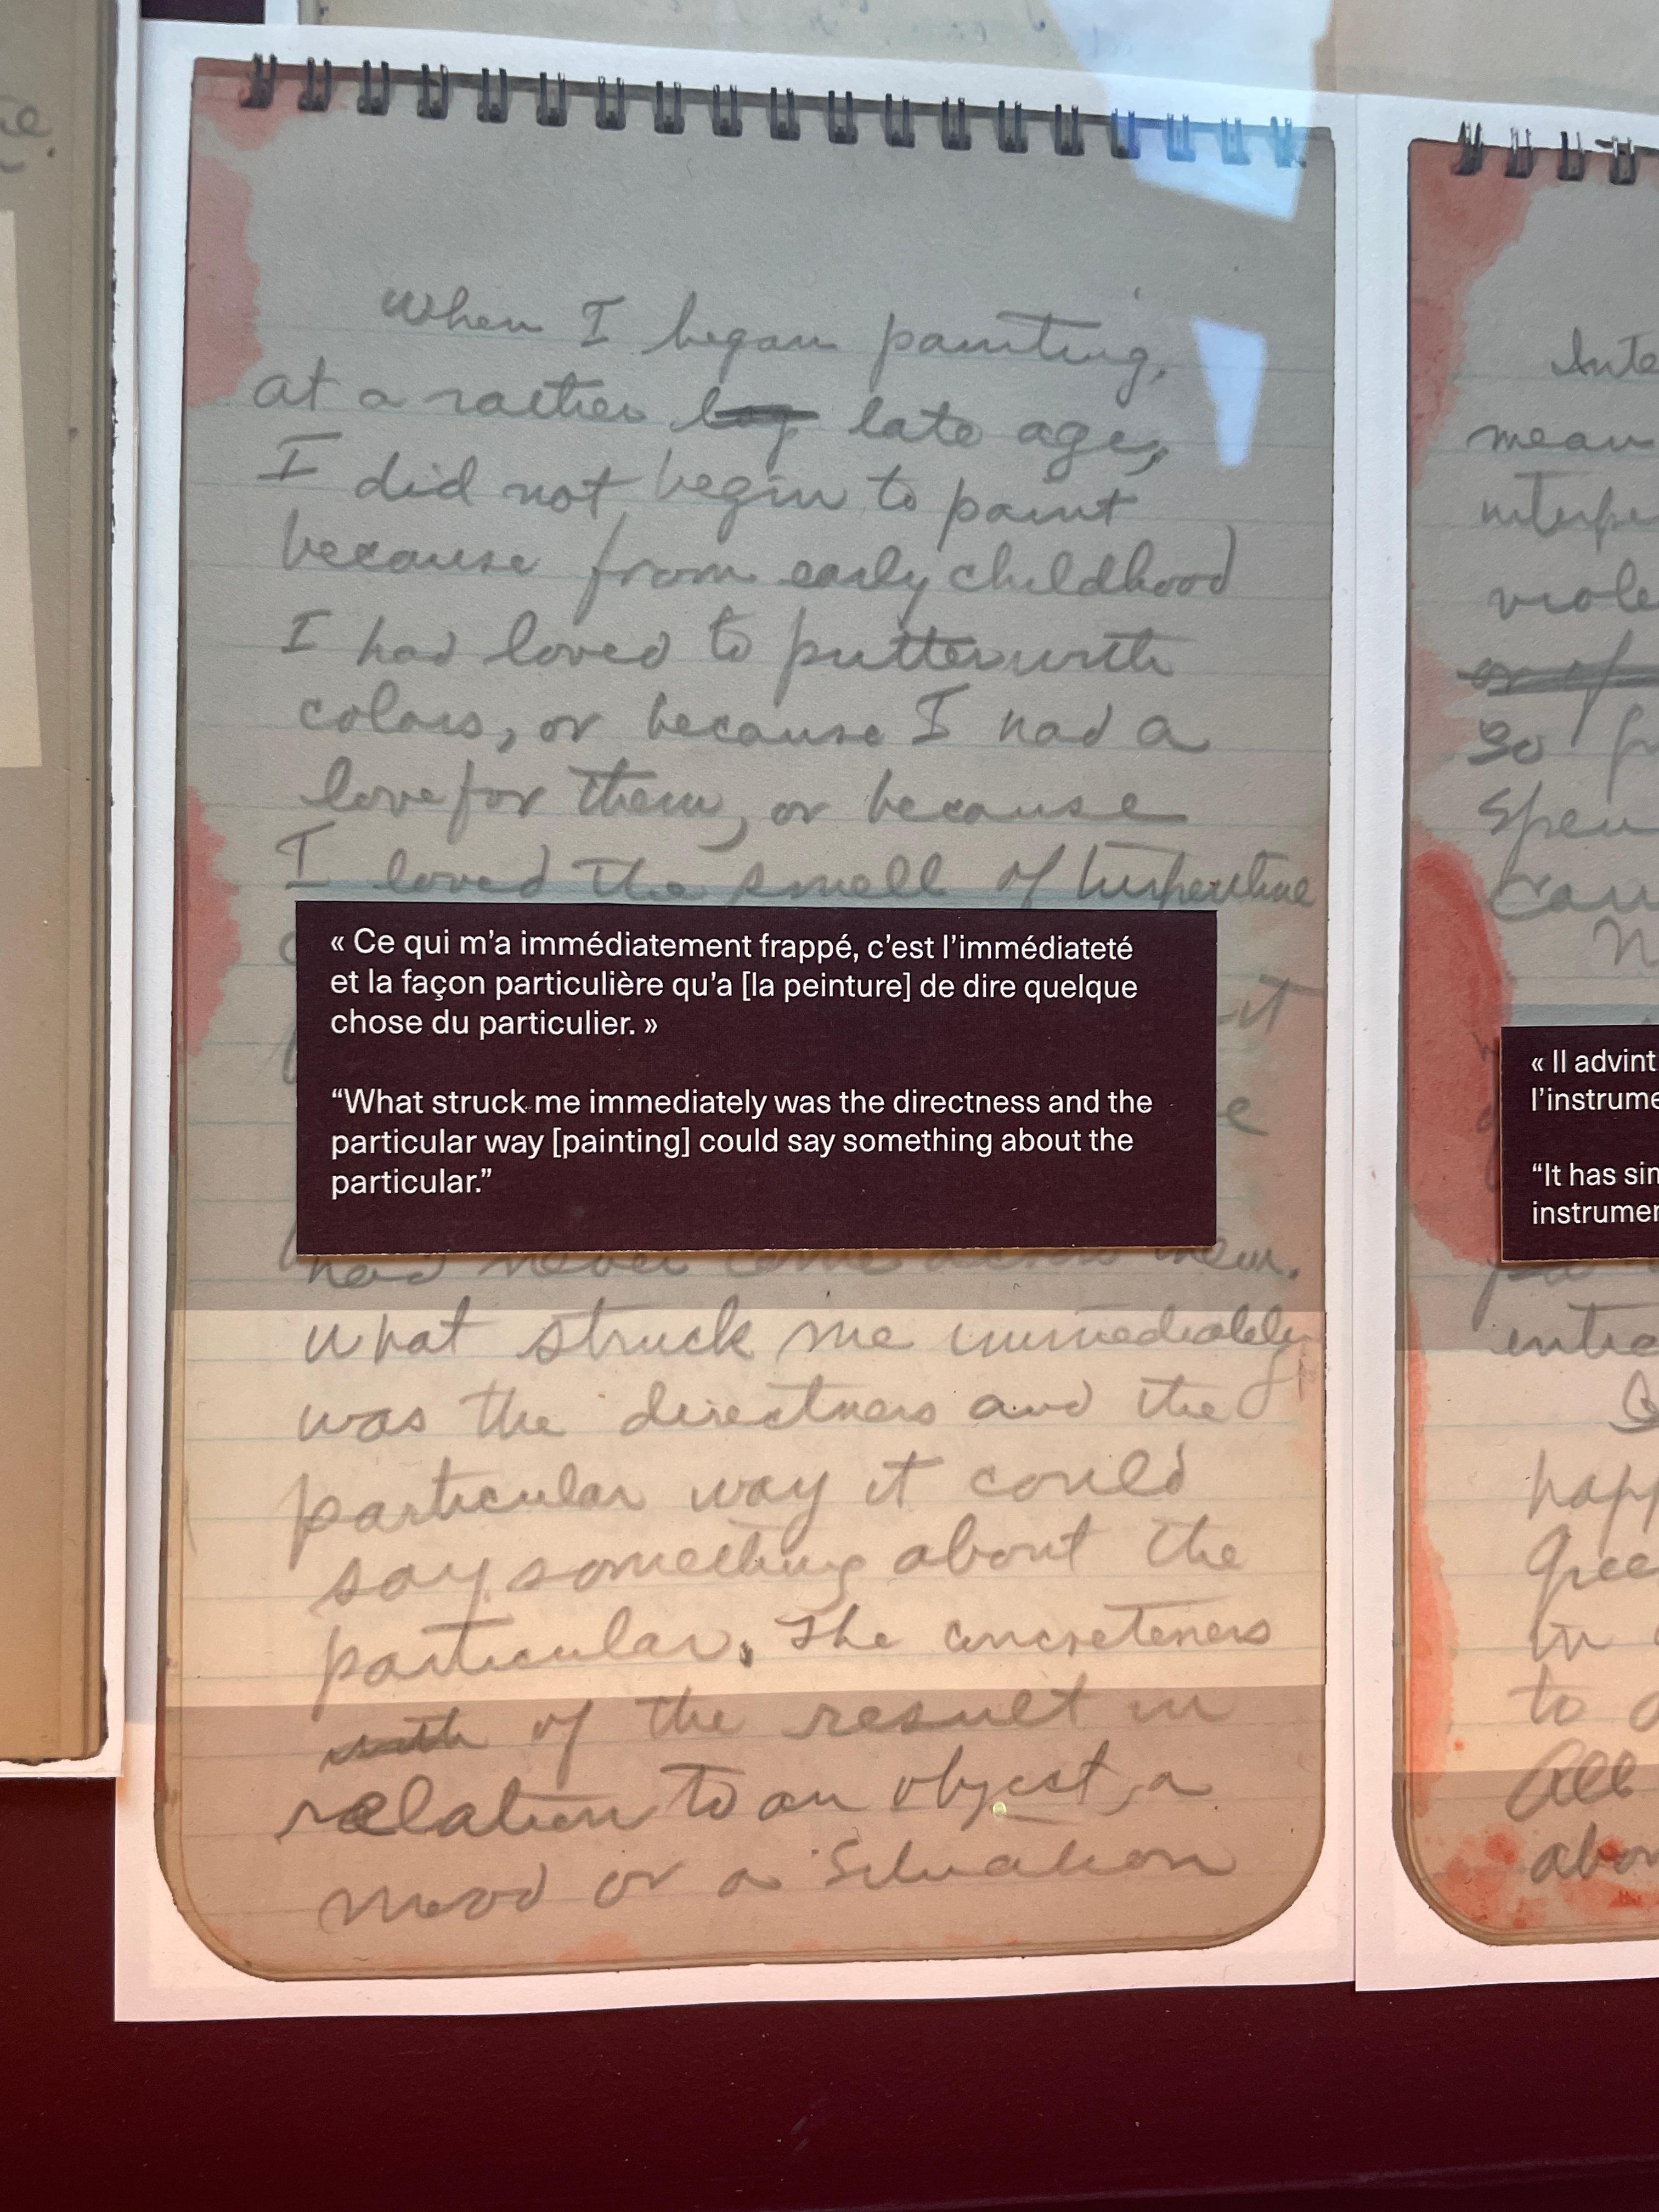 When I began painting,
at a rather late age,
I did not begin to paint
because from early childhood
I had loved to putter with
colors, or because I had a
love for them, or because
I loved the smell of turpentine
« Ce qui m’a immédiatement frappé, c’est l’immédiateté
et la façon particulière qu’a [la peinture] de dire quelque
chose du particulier. »
“What struck me immediately was the directness and the
particular way [painting] could say something about the
particular.”
had never come across them.
What struck me immediately
was the directness and the
particular way it could
say something about the
particular. The concreteness
with of the result in
relation to an object, a
mood or a situation
mean
so
« Il advint
l’instrume
“It has sin
instrumen
to